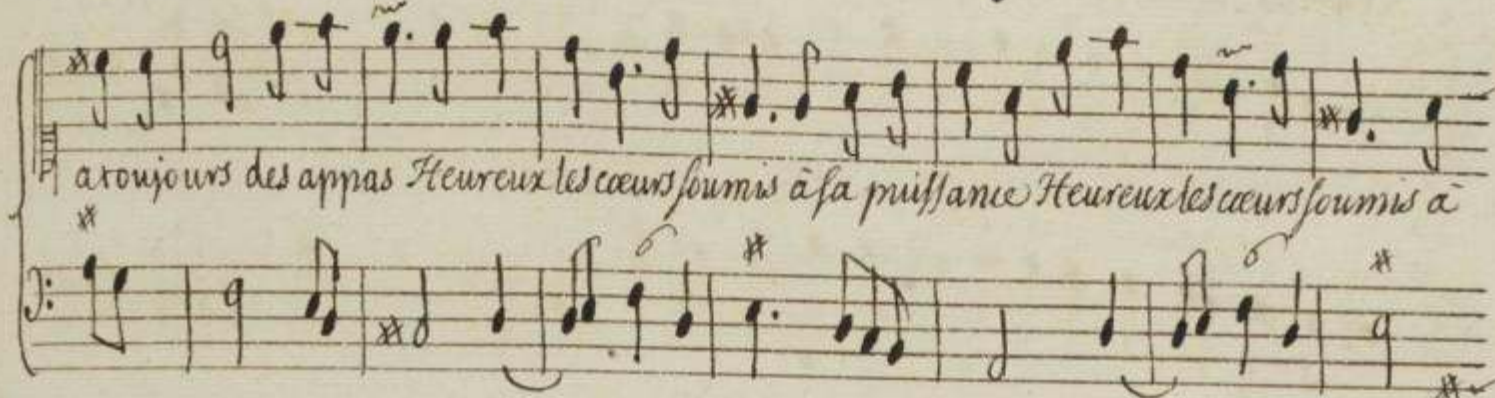 a toujours des appas Heureux les cœurs soumis à sa puissance Heureux les cœurs soumis à
6 6